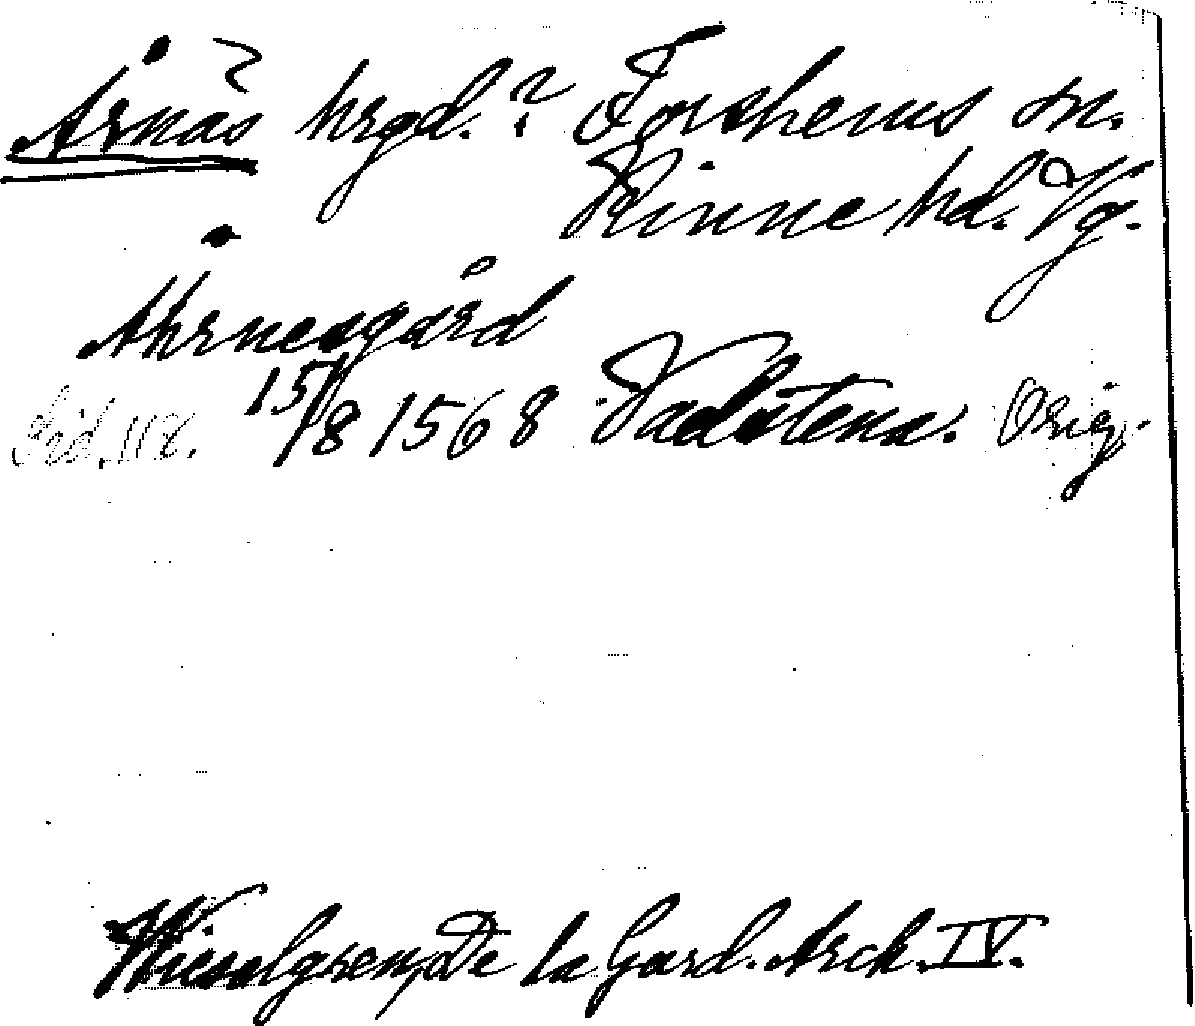 Årnäs hrgd.? Forshems sn.
Kinne hd. Vg.
Åhrnesgård
15/8 1568 Vadstena. Orig.
Wieselgren, De la Gard. Arch. IV.